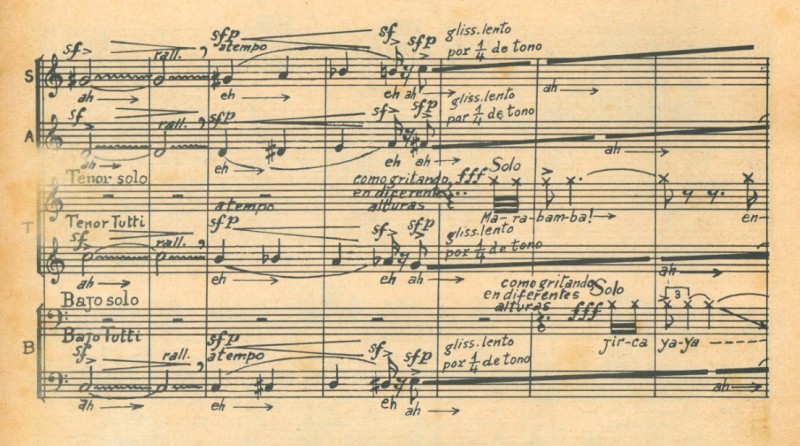 sf> rall. , sfp a tempo sf> sfp gliss. lento por 1/4 de tono
S
ah → eh → eh ah → ah →
sf> rall. , sfp sf> sfp gliss. lento por 1/4 de tono
A
ah → eh → eh ah → ah →
Tenor solo
a tempo como gritando, en diferentes alturas fff Solo
Ma-ra-bam-ba! → en-
T
Tenor Tutti
sf> rall. , sfp sf> sfp gliss. lento por 1/4 de tono
ah → eh → eh ah → ah →
Bajo solo
como gritando en diferentes alturas fff Solo
3
jir-ca ya-ya -----
B
Bajo Tutti
sf> rall. , sfp a tempo sf> sfp gliss. lento por 1/4 de tono
ah → eh → eh ah → ah →